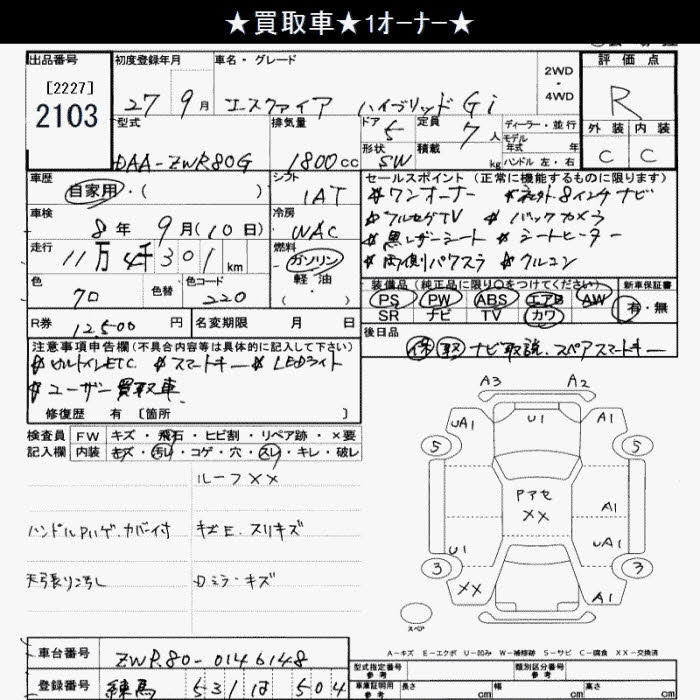 ★買取車★1オーナー★
出品番号 初度登録年月 車名・グレード 2WD・4WD 評価点
[2227]
2103
27年9月 エスクァイア ハイブリッド Gi R
型式 排気量 ドア 5 定員 7人 ディーラー・並行 外装 内装
DAA-ZWR80G 1800cc 形状 SW 積載 kg モデル年式 年 ハンドル 左・右 C C
車歴 シフト セールスポイント(正常に機能するものに限ります)
自家用・( ) IAT #ワンオーナー #ネット8インチナビ
車検 冷房 #フルセグTV #バックカメラ
8年9月(10日) WAC #黒レザーシート #シートヒーター
走行 燃料 #両側パワスラ #クルコン
11万4千301km ガソリン・軽油・( )
装備品(純正品に限り○をつけてください) 新車保証書
色 色替 色コード PS PW ABS エアB AW 有・無
70 220 SR ナビ TV カワ
R券 12500円 名変期限 月 日 後日品
注意事項申告欄(不具合内容等は具体的に記入して下さい) 保 取 ナビ取説、スペアスマートキー
#ビルトインETC #スマートキー #LEDライト
#ユーザー買取車
修復歴 有 [箇所 ]
検査員 FW キズ・飛石・ヒビ割・リペア跡・×要
記入欄 内装 キズ・汚レ・コゲ・穴・スレ・キレ・破レ
ルーフ××
ハンドルPハゲ.カバー付 キズE.スリキズ
天張りこすし Dミラ-キズ
A3 A2
UA1 U1 A1
5 5
Pアセ
××
A1
U1 UA1
3 3
×× A1
スペア
A-キズ E-エクボ U-凹み W-補修跡 S-サビ C-腐食 XX-交換済
車台番号 ZWR80-0146148 型式指定番号 参考 類別区分番号 参考
登録番号 練馬 531 は 504 車庫証明用 参考 長さ cm 幅 cm 高さ cm